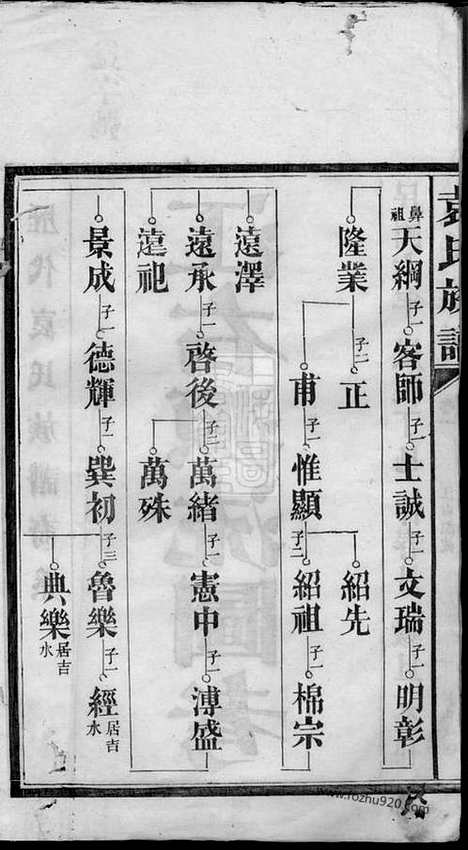 袁氏族譜
鼻祖 天綱 子一 客師 子一 士誠 子一 文瑞 子一 明彰
隆業 子二 正 紹先
甫 惟顯 子二 紹祖 子一 棉宗
遠澤
遠承 子一 啓後 子二 萬緒 子一 憲中 子一 溥盛
遠祀 萬殊
景成 子一 德輝 子一 巽初 子三 魯樂 子一 經 居吉水
典樂 居吉水
www.rozhu920.com